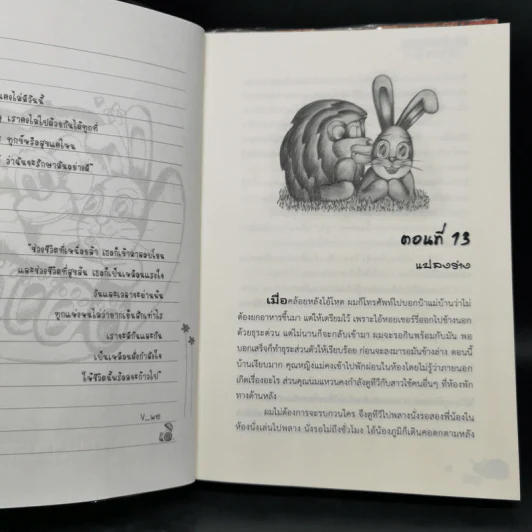 เราคงไม่ไปด้วยกันได้ทุกที่
ทุกข์หรือสุขแค่ไหน
ว่าฉันจะรักษามันอย่างดี"
"ช่วงชีวิตที่เหนื่อยล้า เธอก็เข้ามาปลอบโยน
และช่วงชีวิตที่สุขสัน เธอก็เป็นเหมือนแรงใจ
วันและเวลาจะผ่านพ้น
ทุกแห่งหนไม่ว่ายากเย็นสักเท่าไร
เราจะมีกันและกัน
เป็นเหมือนดั่งกำลังใจ
ให้ชีวิตนั้นก้าวไป"
V_we
ตอนที่ 13
แปลงร่าง
เมื่อคล้อยหลังไอ้โหด ผมก็โทรศัพท์ไปบอกป้าแม่บ้านว่าไม่
ต้องยกอาหารขึ้นมา แต่ให้เตรียมไว้ เพราะไอ้หอยเชอร์รี่ออกไปข้างนอก
ด้วยธุระด่วน แต่ไม่นานก็จะกลับเข้ามา ผมจะรอกินพร้อมกับมัน พอ
บอกเสร็จก็ทำธุระส่วนตัวให้เรียบร้อย ก่อนจะลงมารอมันข้างล่าง ตอนนี้
บ้านเงียบมาก คุณหญิงแม่คงเข้าไปพักผ่อนในห้องโดยไม่รู้ว่าภายนอก
เกิดเรื่องอะไร ส่วนคุณนมแหวนคงกำลังดูทีวีกับสาวใช้คนอื่นๆ ที่ห้องพัก
ทางด้านหลัง
ผมไม่ต้องการจะรบกวนใคร จึงดูทีวีไปพลางนั่งรอสองพี่น้องใน
ห้องนั่งเล่นไปพลาง นั่งรอไม่ถึงชั่วโมง ไอ้น้องภูมิก็เดินคอตกตามหลัง